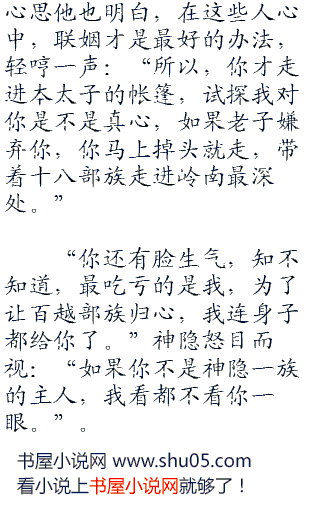 心思他也明白，在这些人心
中，联姻才是最好的办法，
轻哼一声：“所以，你才走
进本太子的帐蓬，试探我对
你是不是真心，如果老子嫌
弃你，你马上掉头就走，带
着十八部族走进岭南最深
处。”
“你还有脸生气，知不
知道，最吃亏的是我，为了
让百越部族归心，我连身子
都给你了。”神隐怒目而
视：“如果你不是神隐一族
的主人，我看都不看你一
眼。”。
书屋小说网 www.shu05.com
看小说上书屋小说网就够了！